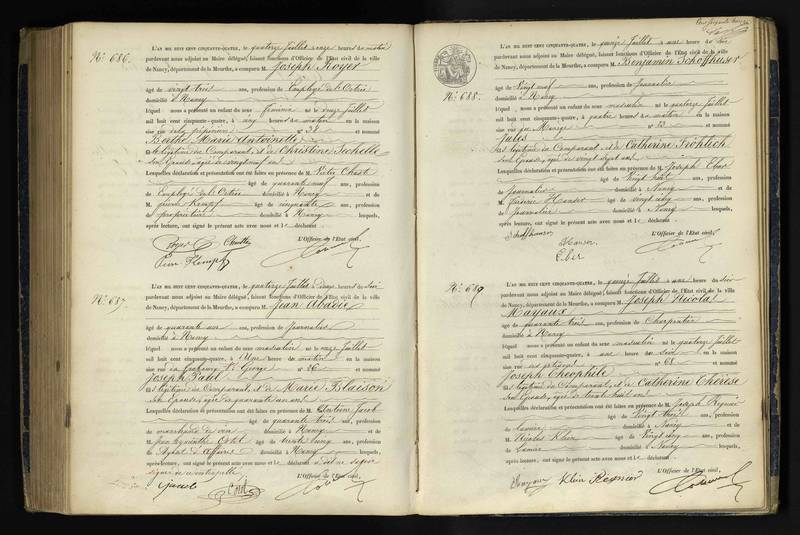 Nº 686.
L'AN MIL HUIT CENT CINQUANTE-QUATRE, le quatorze Juillet à onze heures du matin
pardevant nous adjoint au Maire délégué, faisant fonctions d'Officier de l'Etat civil de la ville
de Nancy, département de la Meurthe, a comparu M. Joseph Royer
âgé de vingt trois ans, profession de Employé de l'Octroi
domicilié à Nancy
lequel nous a présenté un enfant du sexe féminin né le onze Juillet
mil huit cent cinquante-quatre, à cinq heures du matin en la maison
sise rue nº 38 et nommé
Berthe Marie Antoinette
fille légitime du Comparant, et de Christine
son Epouse, âgée de vingt neuf ans
Lesquelles déclaration et présentation ont été faites en présence de M.
âgé de quarante neuf ans, profession
d'Employé de l'Octroi domicilié à Nancy et de
M. Pierre Kempf âgé de cinquante ans, profession
de propriétaire domicilié à Nancy lesquels,
après lecture, ont signé le présent acte avec nous et le déclarant
L'Officier de l'Etat civil,
Royer
Nº 687
L'AN MIL HUIT CENT CINQUANTE-QUATRE, le quatorze Juillet à heures du soir
pardevant nous adjoint au Maire délégué, faisant fonctions d'Officier de l'Etat civil de la ville
de Nancy, département de la Meurthe, a comparu M. Jean Abadie
âgé de quarante ans, profession de Journalier
domicilié à Nancy
lequel nous a présenté un enfant du sexe masculin né le onze Juillet
mil huit cent cinquante-quatre, à Une heure du matin en la maison
sise au faubourg St George nº 26 et nommé
Joseph
fils légitime du Comparant, et de Marie Blaison
son Epouse, âgée de quarante un ans
Lesquelles déclaration et présentation ont été faites en présence de M. Antoine Jacob
âgé de quarante trois ans, profession
de marchand de vin domicilié à Nancy et de
M. Jean âgé de trente cinq ans, profession
d'Agent d'affaires domicilié à Nancy lesquels,
après lecture, ont signé le présent acte avec nous et le déclarant
L'Officier de l'Etat civil,
Jacob
Nº 688.
L'AN MIL HUIT CENT CINQUANTE-QUATRE, le quinze Juillet à une heure du soir
pardevant nous adjoint au Maire délégué, faisant fonctions d'Officier de l'Etat civil de la ville
de Nancy, département de la Meurthe, a comparu M. Benjamin Schoffhuser
âgé de Vingt neuf ans, profession de Journalier
domicilié à Nancy
lequel nous a présenté un enfant du sexe masculin né le quatorze Juillet
mil huit cent cinquante-quatre, à quatre heures du matin en la maison
sise rue du Manège nº 23 et nommé
Jules
fils légitime du Comparant, et de Catherine Fröhlich
son Epouse, âgée de vingt sept ans
Lesquelles déclaration et présentation ont été faites en présence de M. Joseph Eber
âgé de Vingt huit ans, profession
de Journalier domicilié à Nancy et de
M. âgé de vingt cinq ans, profession
de Journalier domicilié à Nancy lesquels,
après lecture, ont signé le présent acte avec nous et le déclarant
Schoffhuser L'Officier de l'Etat civil,
Eber
Nº 689
L'AN MIL HUIT CENT CINQUANTE-QUATRE, le quinze Juillet à une heure du soir
pardevant nous adjoint au Maire délégué, faisant fonctions d'Officier de l'Etat civil de la ville
de Nancy, département de la Meurthe, a comparu M. Joseph Nicolas
Mayaux
âgé de quarante trois ans, profession de Charpentier
domicilié à Nancy
lequel nous a présenté un enfant du sexe masculin né le quatorze Juillet
mil huit cent cinquante-quatre, à une heure du soir en la maison
sise rue nº 68 et nommé
Joseph Théophile
fils légitime du Comparant, et de Catherine Thérèse
son Epouse, âgée de trente huit ans
Lesquelles déclaration et présentation ont été faites en présence de M. Joseph Regnier
âgé de Vingt trois ans, profession
de domicilié à Nancy et de
M. Nicolas Klein âgé de Vingt cinq ans, profession
de domicilié à Nancy lesquels,
après lecture, ont signé le présent acte avec nous et le déclarant
L'Officier de l'Etat civil,
Klein Regnier